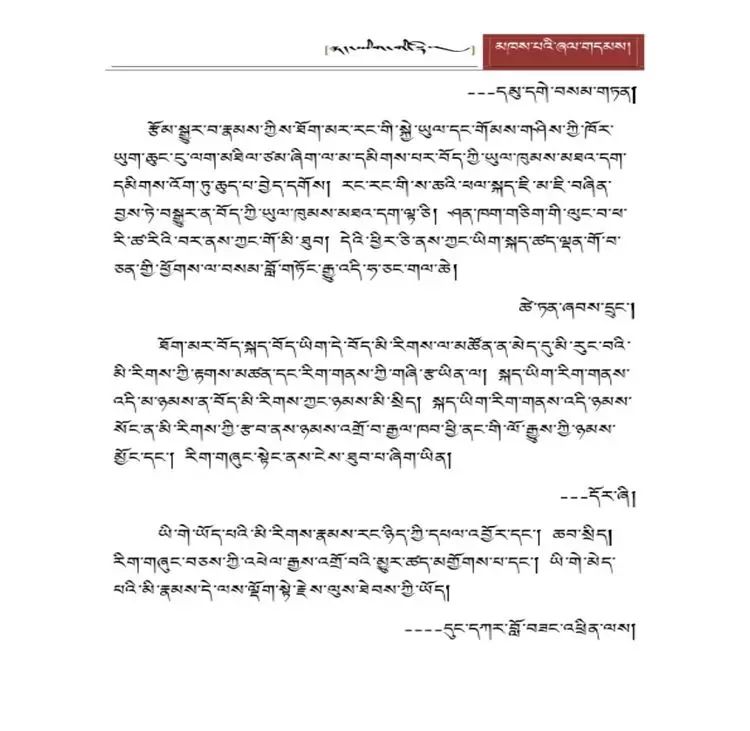 མཁས་པའི་ཞལ་གདམས།
---དམུ་དགེ་བསམ་གཏན།
རྩོམ་སྒྱུར་བ་རྣམས་ཀྱིས་ཐོག་མར་རང་གི་སྐྱེ་ཡུལ་དང་གོམས་གཤིས་ཀྱི་ཁོར་
ཡུག་ཆུང་ངུ་ལག་མཐིལ་ཙམ་ཞིག་ལ་མ་དམིགས་པར་བོད་ཀྱི་ཡུལ་ཁམས་མཐའ་དག་
དམིགས་འོག་ཏུ་ཆུད་པ་བྱེད་དགོས། རང་རང་གི་ས་ཆའི་ཕལ་སྐད་ཇི་མ་ཇི་བཞིན་
བྱས་ཏེ་བསྒྱུར་ན་བོད་ཀྱི་ཡུལ་ཁམས་མཐའ་དག་ལྟ་ཅི། ཤན་ཁག་གཅིག་གི་ལུང་བ་ཕ་
རི་ཚ་རིའི་བར་ནས་ཀྱང་གོ་མི་ཐུབ། དེའི་ཕྱིར་ཅི་ནས་ཀྱང་ཡིག་སྐད་ཚད་ལྡན་གོ་བ་
ཅན་གྱི་ཕྱོགས་ལ་བསམ་བློ་གཏོང་རྒྱུ་འདི་ཧ་ཅང་གལ་ཆེ།
ཚེ་ཏན་ཞབས་དྲུང་།
ཐོག་མར་བོད་སྐད་བོད་ཡིག་དེ་བོད་མི་རིགས་ལ་མཚོན་ན་མེད་དུ་མི་རུང་བའི་
མི་རིགས་ཀྱི་རྟགས་མཚན་དང་རིག་གནས་ཀྱི་གཞི་རྩ་ཡིན་ལ། སྐད་ཡིག་རིག་གནས་
འདི་མ་ཉམས་ན་བོད་མི་རིགས་ཀྱང་ཉམས་མི་སྲིད། སྐད་ཡིག་རིག་གནས་འདི་ཉམས་
སོང་ན་མི་རིགས་ཀྱི་རྩ་བ་ནས་ཉམས་འགྲོ་བ་རྒྱལ་ཁབ་ཕྱི་ནང་གི་ལོ་རྒྱུས་ཀྱི་ཉམས་
མྱོང་དང་། རིག་གཞུང་སྟེང་ནས་ངེས་ཐུབ་པ་ཞིག་ཡིན།
---དོར་ཞི།
ཡི་གེ་ཡོད་པའི་མི་རིགས་རྣམས་རང་ཉིད་ཀྱི་དཔལ་འབྱོར་དང་། ཆབ་སྲིད།
རིག་གཞུང་བཅས་ཀྱི་འཕེལ་རྒྱས་འགྲོ་བའི་མྱུར་ཚད་མགྱོགས་པ་དང་། ཡི་གེ་མེད་
པའི་མི་རྣམས་དེ་ལས་ལྡོག་སྟེ་རྗེས་ལུས་ཐེབས་ཀྱི་ཡོད།
----དུང་དཀར་བློ་བཟང་འཕྲིན་ལས།